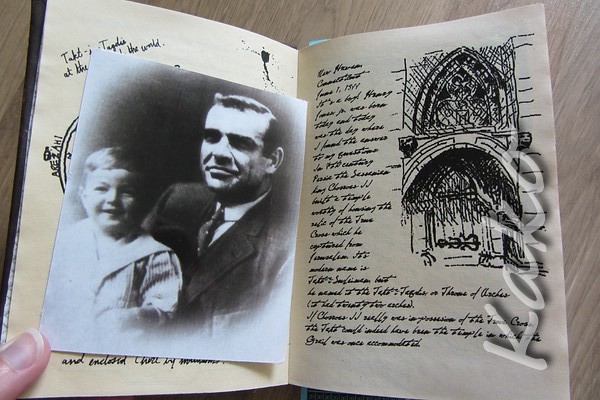 Takt-i-Taqdis
at the the world.
AREZAHI
and enclosed there by
New Haven
Connecticut
June 1, 1911
It's a boy! Henry
Jones Jr. was born
today and today
was the day where
I found the answer
to my questions
In 7th century
Persia the Sassanian
king Chosroes II
built a temple
worthy of housing the
relic of the True
Cross which he
captured from
Jerusalem. Its
modern name is
Takt-i-Suleiman but
he named it the Takt-i-Taqdis or Throne of Arches
(it had twenty two arches).
If Chosroes II really was in possession of the True Cross,
the Takt could indeed have been the temple in which the
Grail was once accommodated.
Kako